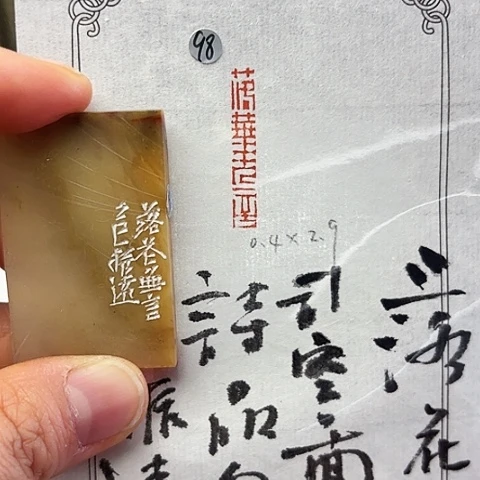 98
落華无言
0.4×2.9
落花無言
乙巳
落花
司空圖
詩品